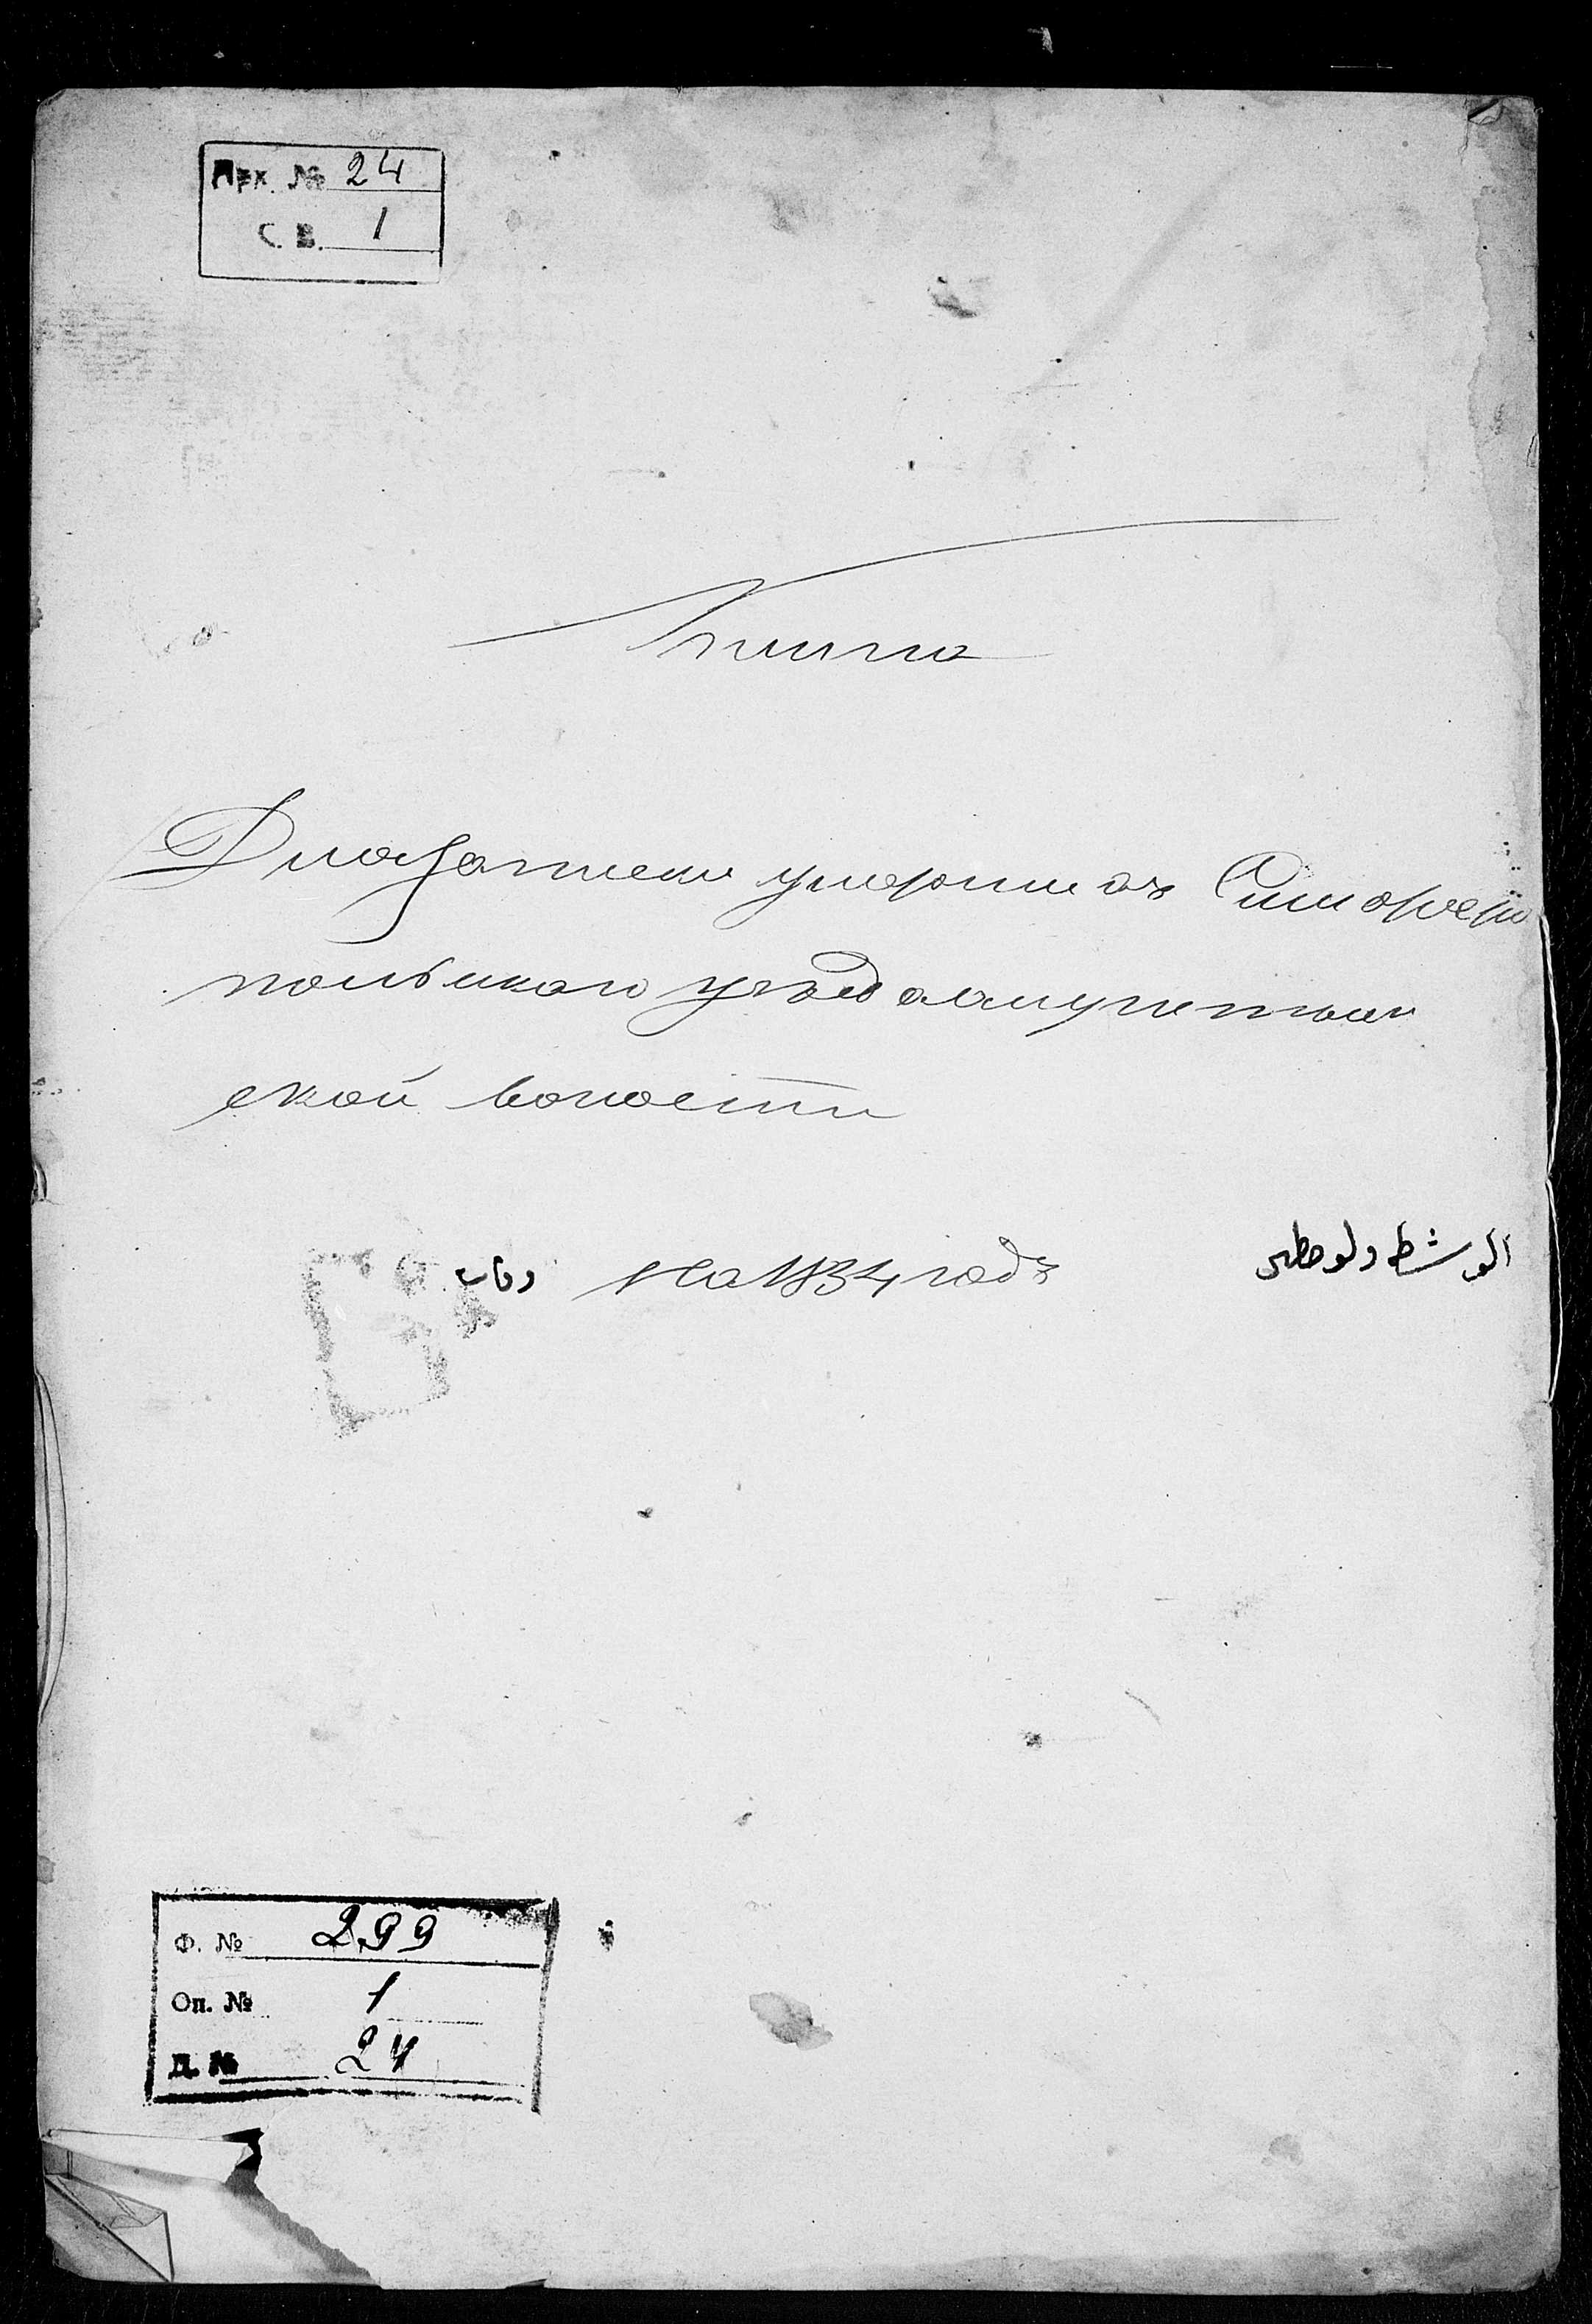 Арх. № 24
С. В. 1
Книга
Для записки умерших Симферо
польскаго уезда алуштин
ской волости
وفات На 1834 годъ
Ф. № 299
Оп. № 1
Д. № 24